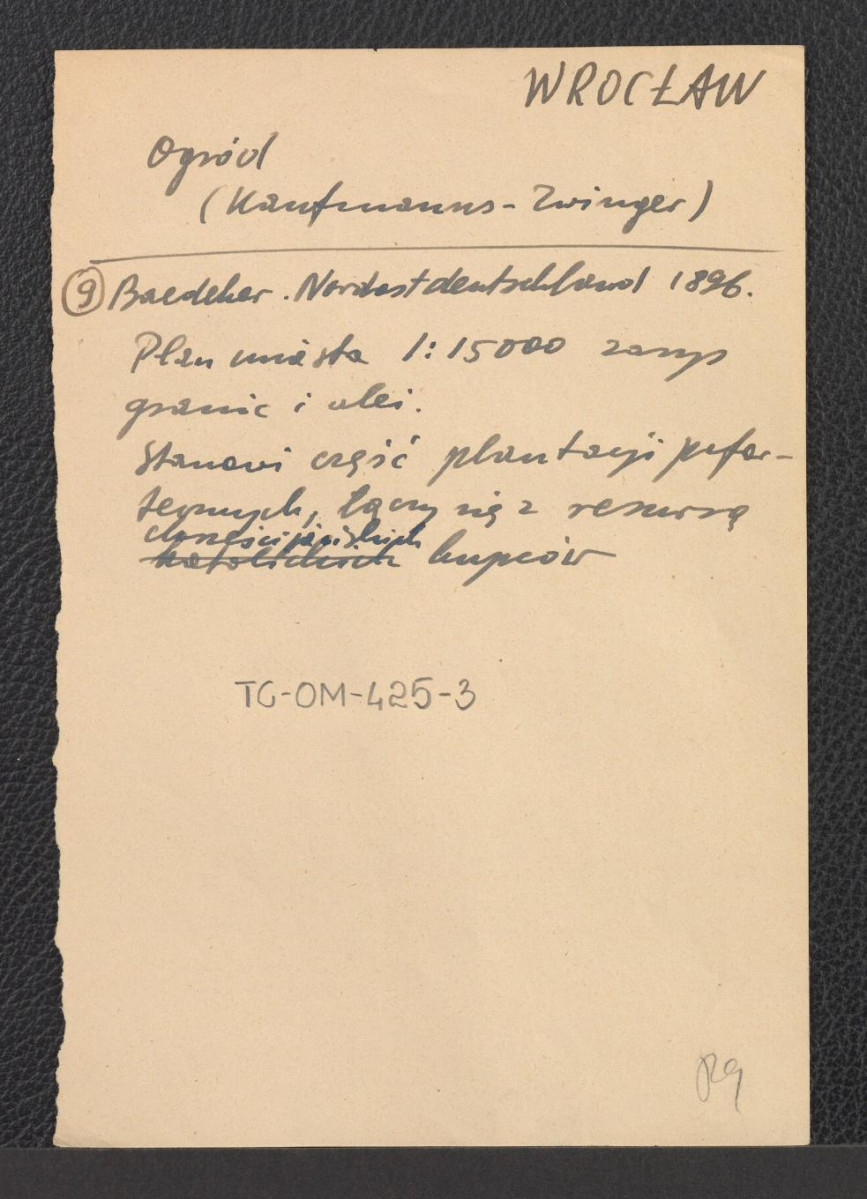 WROCŁAW
Ogród
(Kaufmanns-Zwinger)
9 Baedeker. Nordostdeutschland 1896.
Plan miasta 1:15000 zarys
granic i alei.
Stanowi część plantacji pofor-
tecznych, łączy się z resursą
chrześcijańskich
katolickich kupców
TG-OM-425-3